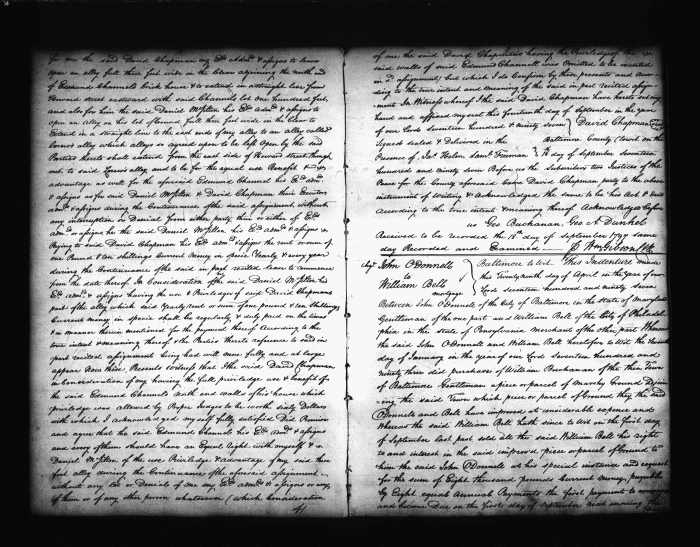 for me the said David Chapman my Exrs Admrs & assigns to leave
open an alley full three feet wide in the Clear adjoining the north end
of Edmund Channels brick house & to extend in a straight line from
Howard street eastward with said Channels lot one hundred feet,
and also for him the said Daniel McJilton his Exrs admrs & assigns to
open an alley on his lot of Ground full three feet wide in the Clear to
Extend in a straight line to the east ends of my alley to an alley called
alley which alleys so agreed upon to be left Open by the said
Parties hereto shall extend from the east side of Howard street through
out to said alley and to be for the equal use Benefit &
advantage as well for the aforesaid Edmund Channel his Exrs admrs
& assigns as for said Daniel McJilton & David Chapman their Executors
admrs & assigns during the Continuance of the said assignment without
any interruption or Denial from either party them or either of Exrs
admrs or assigns he the said Daniel McJilton his Exrs admrs & assigns
Paying to said David Chapman his Exrs admrs & assigns the rent or sum of
One Pound & ten shillings Current Money in specie Yearly & every year
during the Continuance of the said in part recited lease to commence
from the date hereof In Consideration of the said Daniel McJilton his
Exrs admrs & assigns having the use & Privilege of said David Chapmans
part of the alley which said Yearly rent or sum of one pound & ten shillings
Current money in specie shall be regularly & duly paid on the times
& in manner herein mentioned for the payment thereof According to the
true intent & meaning thereof & the Parties thereto reference to said in
part recited assignment being had will more fully and at large
appear Now these Presents witness that the said David Chapman
in Consideration of my having the full priviledge use & benefit of
the said Edmund Channels North end walls of his house which
priviledge was allowed by Proper Judges to be worth sixty Dollars
with which I acknowledge myself fully satisfied Did Promise
and agree that the said Edmund Channel his Exrs admrs & assigns
and every of them should have an Equal Right with myself &
Daniel McJilton of the use Priviledge & advantage of my said three
feet alley during the Continuance of the aforesaid assignment
without any Let or Denial of me my Exrs admrs & assigns or any
of them or of any other person whatsoever (which Consideration
of me the said David Chapmans having the Priviledge of the
said walls of said Edmund Channell, was Omitted to be inserted
in sd assignment) but which I do Confirm by these presents and
according to the true intent and meaning of the said in part recited assign
ment In Witness whereof I the said David Chapman have hereto set my
hand and affixed my seal this fourteenth day of september in the year
of our Lord seventeen hundred & ninety seven David Chapman
Signed sealed & Delivered in the Baltimore County, towit on the
Presence of Jno Helm, Saml Freeman day of september seventeen
hundred and ninety seven Before us the Subscribers two Justices of the
Peace for the County aforesaid Came David Chapman party to the above
instrument of Writing & Acknowledged the same to be his Act & Deed
According to the true intent & meaning thereof Acknowledged before
us Geo Buchanan, Geo A Dunkel
Received to be recorded the day of september 1797 same
day Recorded and Examined Wm Gibson Clk
John O'Donnell Baltimore to wit This Indenture made
to this Twenty ninth day of April in the Year of our
William Bell Lord seventeen hundred and ninety seven
mortgage
Between John O'Donnell of the City of Baltimore in the state of Maryland
Gentleman of the one part and William Bell of the City of Philadel
phia in the state of Pennsylvania Merchant of the other part Whereas
the said John O'Donnell and William Bell heretofore to wit the
day of January in the year of our Lord Seventeen hundred and
ninety three did purchase of William Buchanan of the then Town
of Baltimore Gentleman a piece or parcel of Marshy Ground Adjoin
ing the said Town which piece or parcel of Ground they the said
O'Donnell and Bell have improved at considerable expence and
Whereas the said William Bell hath since to wit on the first day
of September last past sold the said William Bell his right
to and interest in the said improved piece or parcel of Ground to
him the said John O'Donnell at his special instance and request
for the sum of Eight thousand pounds Current money, payable
by Eight equal Annual Payments the first payment to
and become Due on the first day of September next ensuing